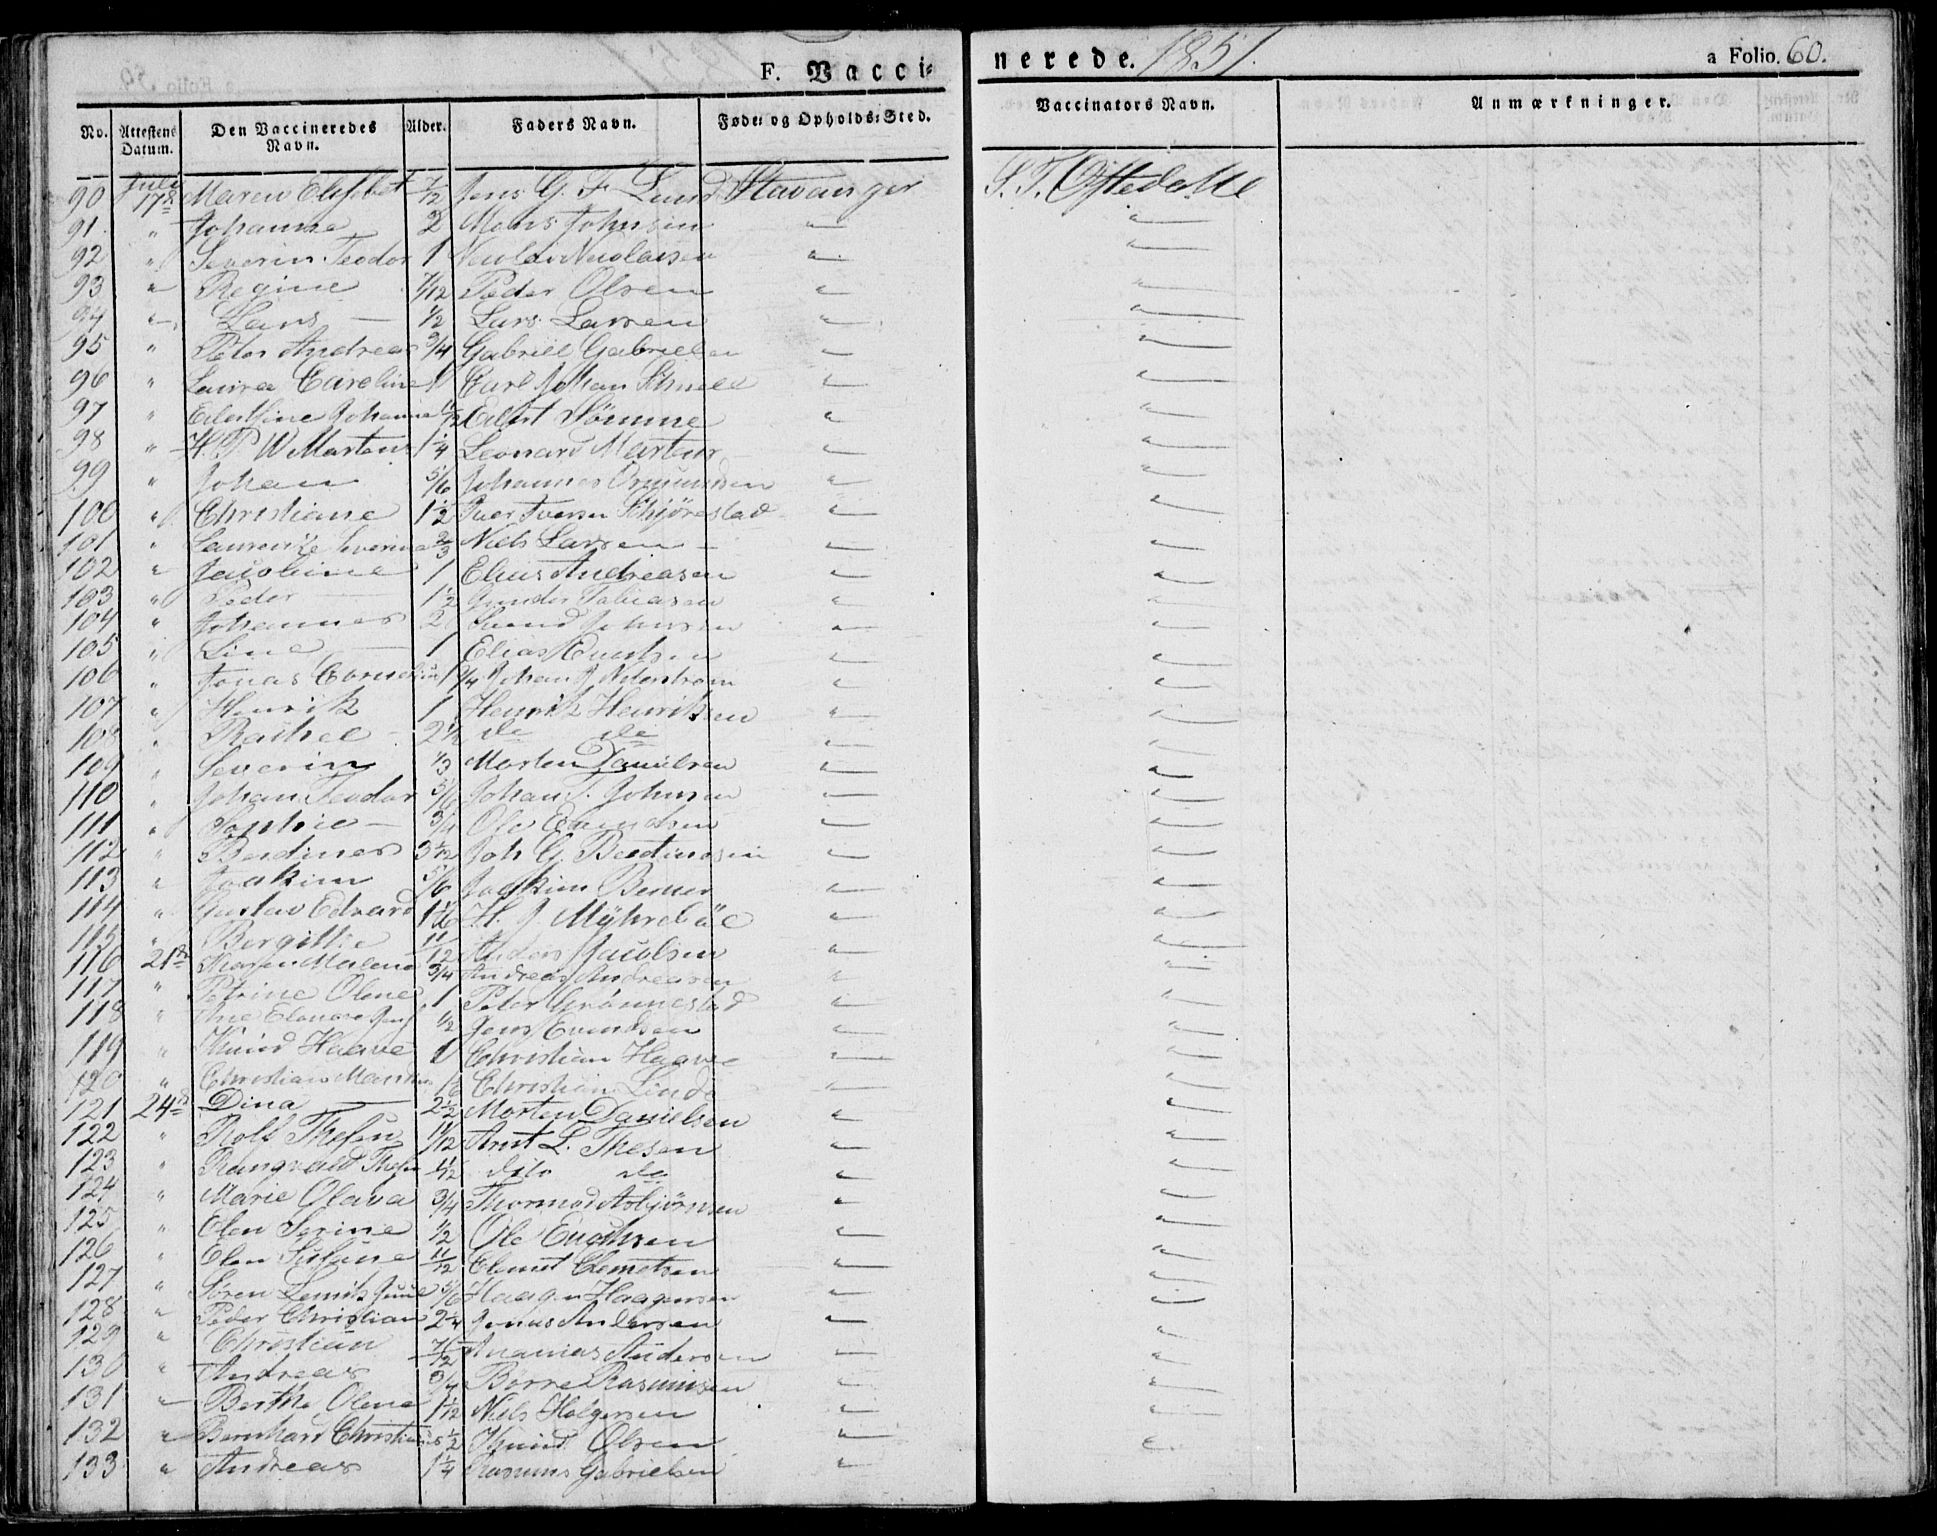 F. Vacci-
nerede. 1851.
a Folio. 60.
No. Attestens Datum. Den Vaccineredes Navn. Alder. Faders Navn. Føde- og Opholds-Sted. Vaccinators Navn. Anmærkninger.
Juli
90 17de Maren Elisabet 1/2 Jens G. F. Lund Stavanger S. T. Oftedahl
91 " Johanna 2 Mons Johnsen " "
92 " Severin Teodor 1 Nicolai Nicolaisen " "
93 " Regine 7/12 Peder Olsen " "
94 " Lars 1/2 Lars Larsen " "
95 " Peter Andreas 3/4 Gabriel Gabrielsen " "
96 " Laura Caroline 1 Carl Johan " "
97 " Johanne Eilert Sømme " "
98 " H. P. W. Martens 1 1/4 Leonard " "
99 " Johan 5/6 Johannes Osmundsen " "
100 " Christiane 1 1/2 Iver Iversen " "
101 " Severine 2/3 Niels Larsen " "
102 " Jacobine 1 Elias Andreasen " "
103 " Peder 1 1/2 Gunder Tobiasen " "
104 " Johannes 2 Svend Johnsen " "
105 " Line 1 Elias " "
106 " Jonas Cornelius 1 3/4 Johan J. " "
107 " Henrik 1 Henrik Henriksen " "
108 " Rachel 2 1/2 do do " "
109 " Severin 1/3 Morten Danielsen " "
110 " Johan Teodor 5/6 Johan T. Johnsen " "
111 " Sophie 3/4 Ole " "
112 " Berdines 3 1/12 Joh G. " "
113 " Joakim 5/6 Joakim Berner " "
114 " Gustav Edvard 1 1/6 H. J. " "
115 " Bergitte 11/12 Anders Jacobsen " "
116 21de Karen Malene 3/4 Andreas Andreasen " "
117 " Petrine Olene 1 Peter Grønnestad " "
118 " 1/2 Jens " "
119 " Knud Haave 1 Christian Haave " "
120 " Christian Christian Linde " "
121 24de Dina 2 1/2 Morten Danielsen " "
122 " Rolf Thesen 11/12 Arnt L. Thesen " "
123 " Rangvald Thesen dito do " "
124 " Marie Olava 3/4 Thormod Asbjørnsen " "
125 " Elen Serine 1/2 Ole " "
126 " Elen 11/12 Clemet Clemetsen " "
127 " Søren Juul 5/6 Haagen Haagensen " "
128 " Peder Christian 2 1/4 Jonas Andersen " "
129 " Christian 7/12 Ananias Andersen " "
130 " Andreas 3/4 Børre Rasmusen " "
131 " Berthe Olene 1 1/12 Niels Holgersen " "
132 " Bernhard Christian 1/2 Knud Olsen " "
133 " Andreas 1 1/4 Rasmus Gabrielsen "